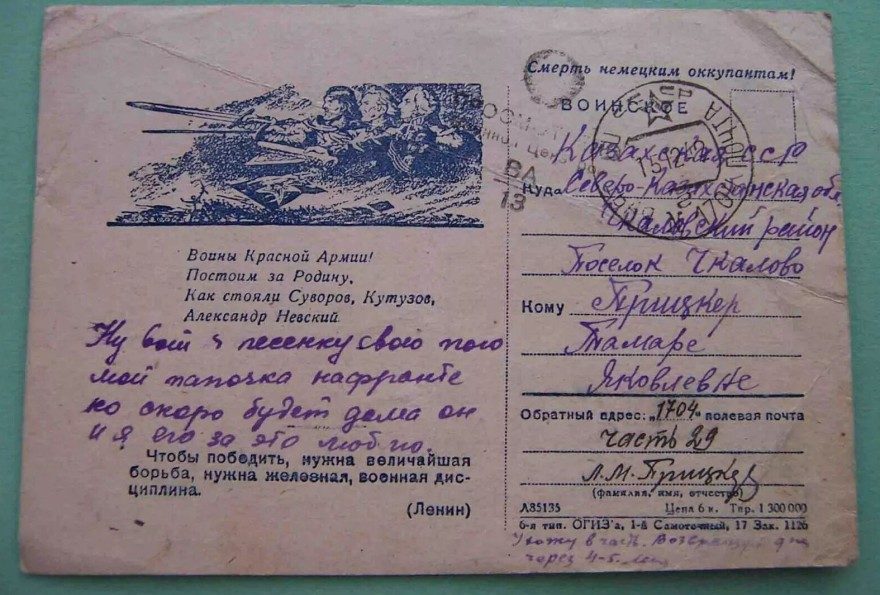 Смерть немецким оккупантам!
ВОИНСКОЕ
ВА
13
15 12 42
ПОЧТА
Казахская ССР
Куда Северо-Казахстанская обл
Чкаловский район
Поселок Чкалово
Кому Прицкер
Тамаре
Яковлевне
Обратный адрес: „1704" полевая почта
часть 29
Л.М. Прицкер
(фамилия, имя, отчество)
А85135 Цена 6 к. Тир. 1 300 000
6-я тип. ОГИЗ'а, 1-й Самотечный, 17 Зак. 1126
Ухожу в часть.
через 4-5
Воины Красной Армии!
Постоим за Родину,
Как стояли Суворов, Кутузов,
Александр Невский
Ну вот и песенку свою пою
мой папочка на фронте
но скоро будет дома он
и я его за это люблю.
Чтобы победить, нужна величайшая
борьба, нужна железная, военная дис-
циплина.
(Ленин)